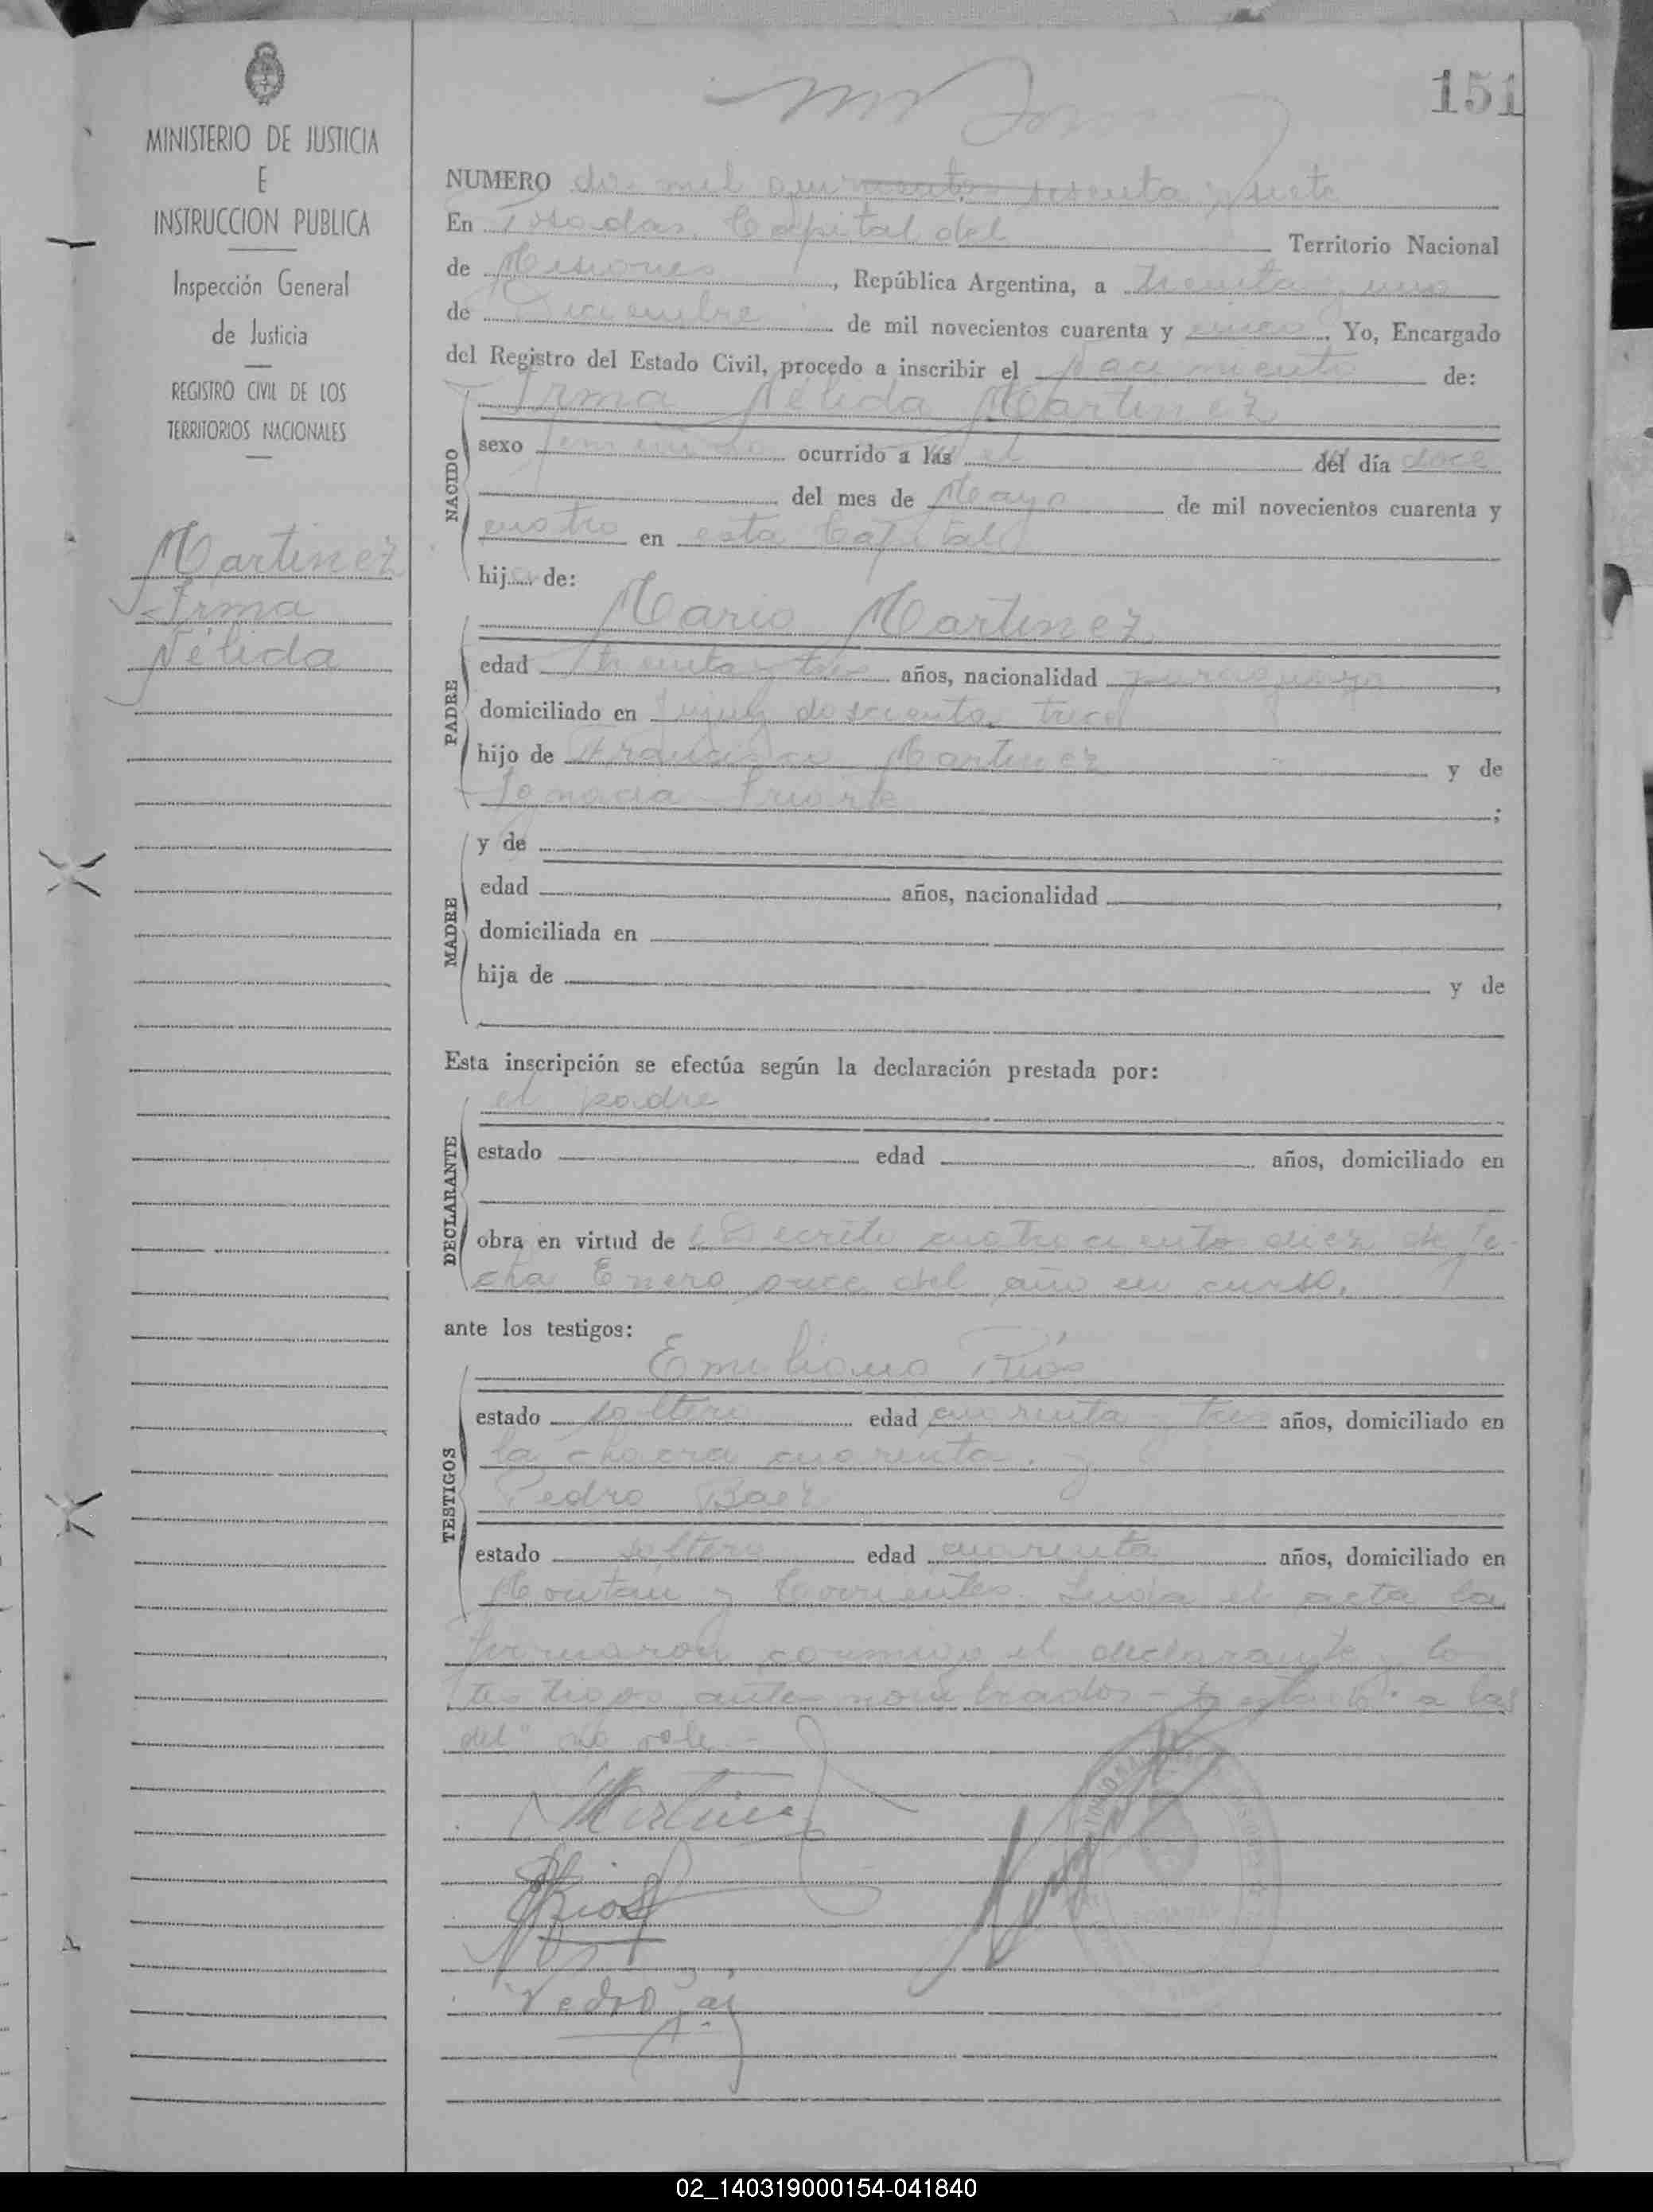 151
MINISTERIO DE JUSTICIA
E
INSTRUCCION PUBLICA
Inspección General
de Justicia
REGISTRO CIVIL DE LOS
TERRITORIOS NACIONALES
Martinez
Irma
Nélida
NUMERO dos mil quinientos sesenta y siete
En Posadas, Capital del Territorio Nacional
de Misiones, República Argentina, a treinta y uno
de Diciembre de mil novecientos cuarenta y cinco. Yo, Encargado
del Registro del Estado Civil, procedo a inscribir el Nacimiento de:
Irma Nélida Martinez
NACIDO
sexo femenino ocurrido a las el del día doce
del mes de Mayo de mil novecientos cuarenta y
cuatro en esta Capital
hija de:
Mario Martinez
PADRE
edad treinta y tres años, nacionalidad paraguayo,
domiciliado en Jujuy doscientos trece
hijo de Francisco Martinez y de
Ignacia Iriarte;
y de
MADRE
edad años, nacionalidad
domiciliada en
hija de y de
Esta inscripción se efectúa según la declaración prestada por:
el padre
DECLARANTE
estado edad años, domiciliado en
obra en virtud de Decreto cuatrocientos diez de fe-
cha Enero once del año en curso.
ante los testigos:
Emiliano Ríos
TESTIGOS
estado soltero edad cuarenta y tres años, domiciliado en
la chacra cuarenta. y
Pedro Baez
estado soltero edad cuarenta años, domiciliado en
y Corrientes. Leida el acta la
firmaron conmigo el declarante y lo
testigos antes nombrados - Testado: a las
del" no vale.-
Martinez
Rios
Pedro
02_140319000154-041840